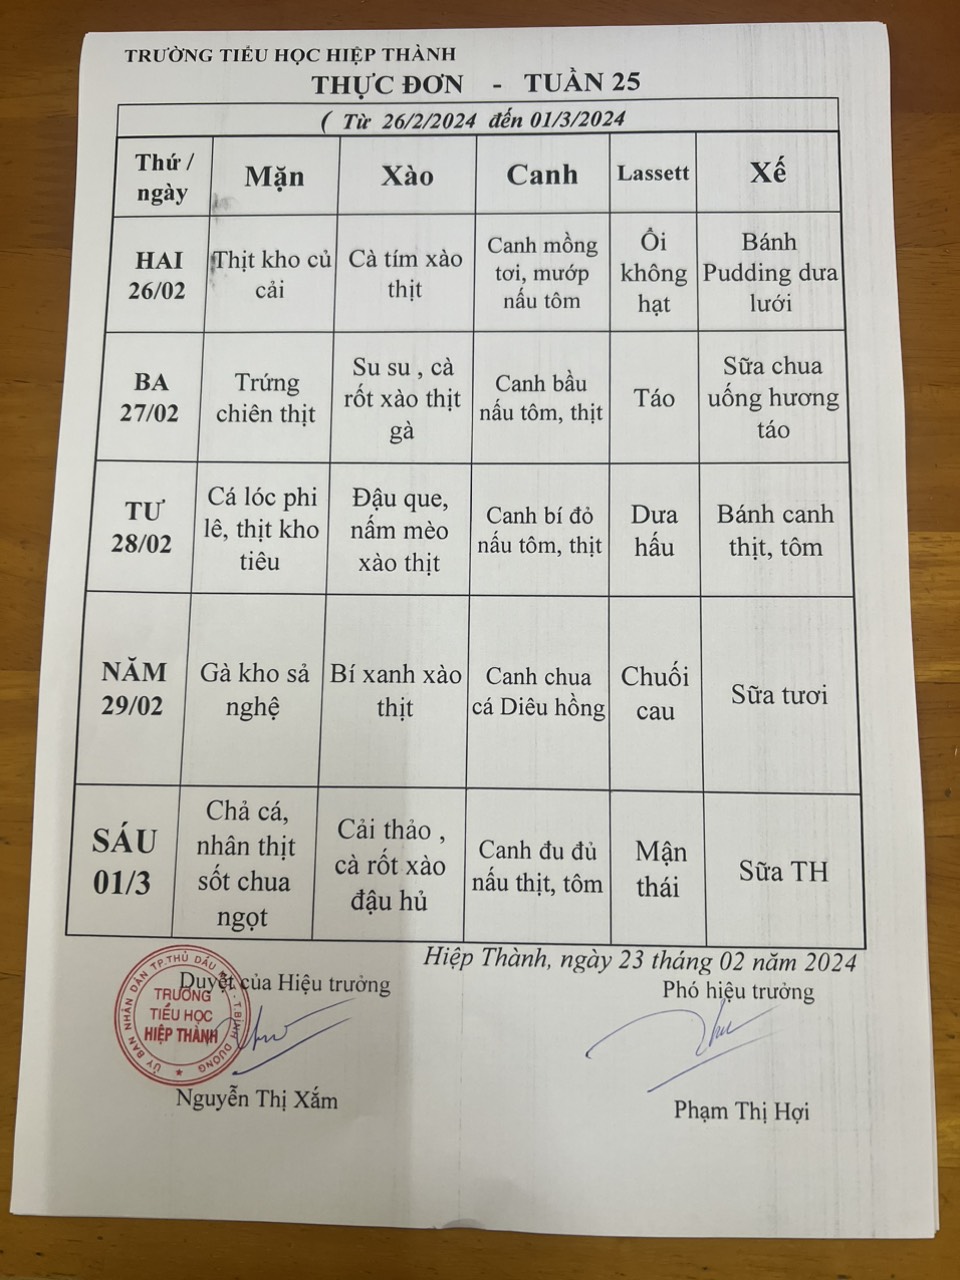 TRƯỜNG TIỂU HỌC HIỆP THÀNH
THỰC ĐƠN - TUẦN 25
( Từ 26/2/2024 đến 01/3/2024
Thứ /
ngày
Mặn
Xào
Canh
Lassett
Xế
HAI
26/02
Thịt kho củ
cải
Cà tím xào
thịt
Canh mồng
tơi, mướp
nấu tôm
Ôi
không
hạt
Bánh
Pudding dưa
lưới
BA
27/02
Trứng
chiên thịt
Su su , cà
rốt xào thịt
gà
Canh bầu
nấu tôm, thịt
Táo
Sữa chua
uống hương
táo
TƯ
28/02
Cá lóc phi
lê, thịt kho
tiêu
Đậu que,
nấm mèo
xào thịt
Canh bí đỏ
nấu tôm, thịt
Dưa
hấu
Bánh canh
thịt, tôm
NĂM
29/02
Gà kho sả
nghệ
Bí xanh xào
thịt
Canh chua
cá Diêu hồng
Chuối
cau
Sữa tươi
SÁU
01/3
Chả cá,
nhân thịt
sốt chua
ngọt
Cải thảo ,
cà rốt xào
đậu hủ
Canh đu đủ
nấu thịt, tôm
Mận
thái
Sữa TH
Hiệp Thành, ngày 23 tháng 02 năm 2024
Duyệt của Hiệu trưởng
Phó hiệu trưởng
ỦY BAN NHÂN DÂN TP.THỦ DẦU - T.BÌNH DƯƠNG
TRƯỜNG
TIỂU HỌC
HIỆP THÀNH
Nguyễn Thị Xắm
Phạm Thị Hợi